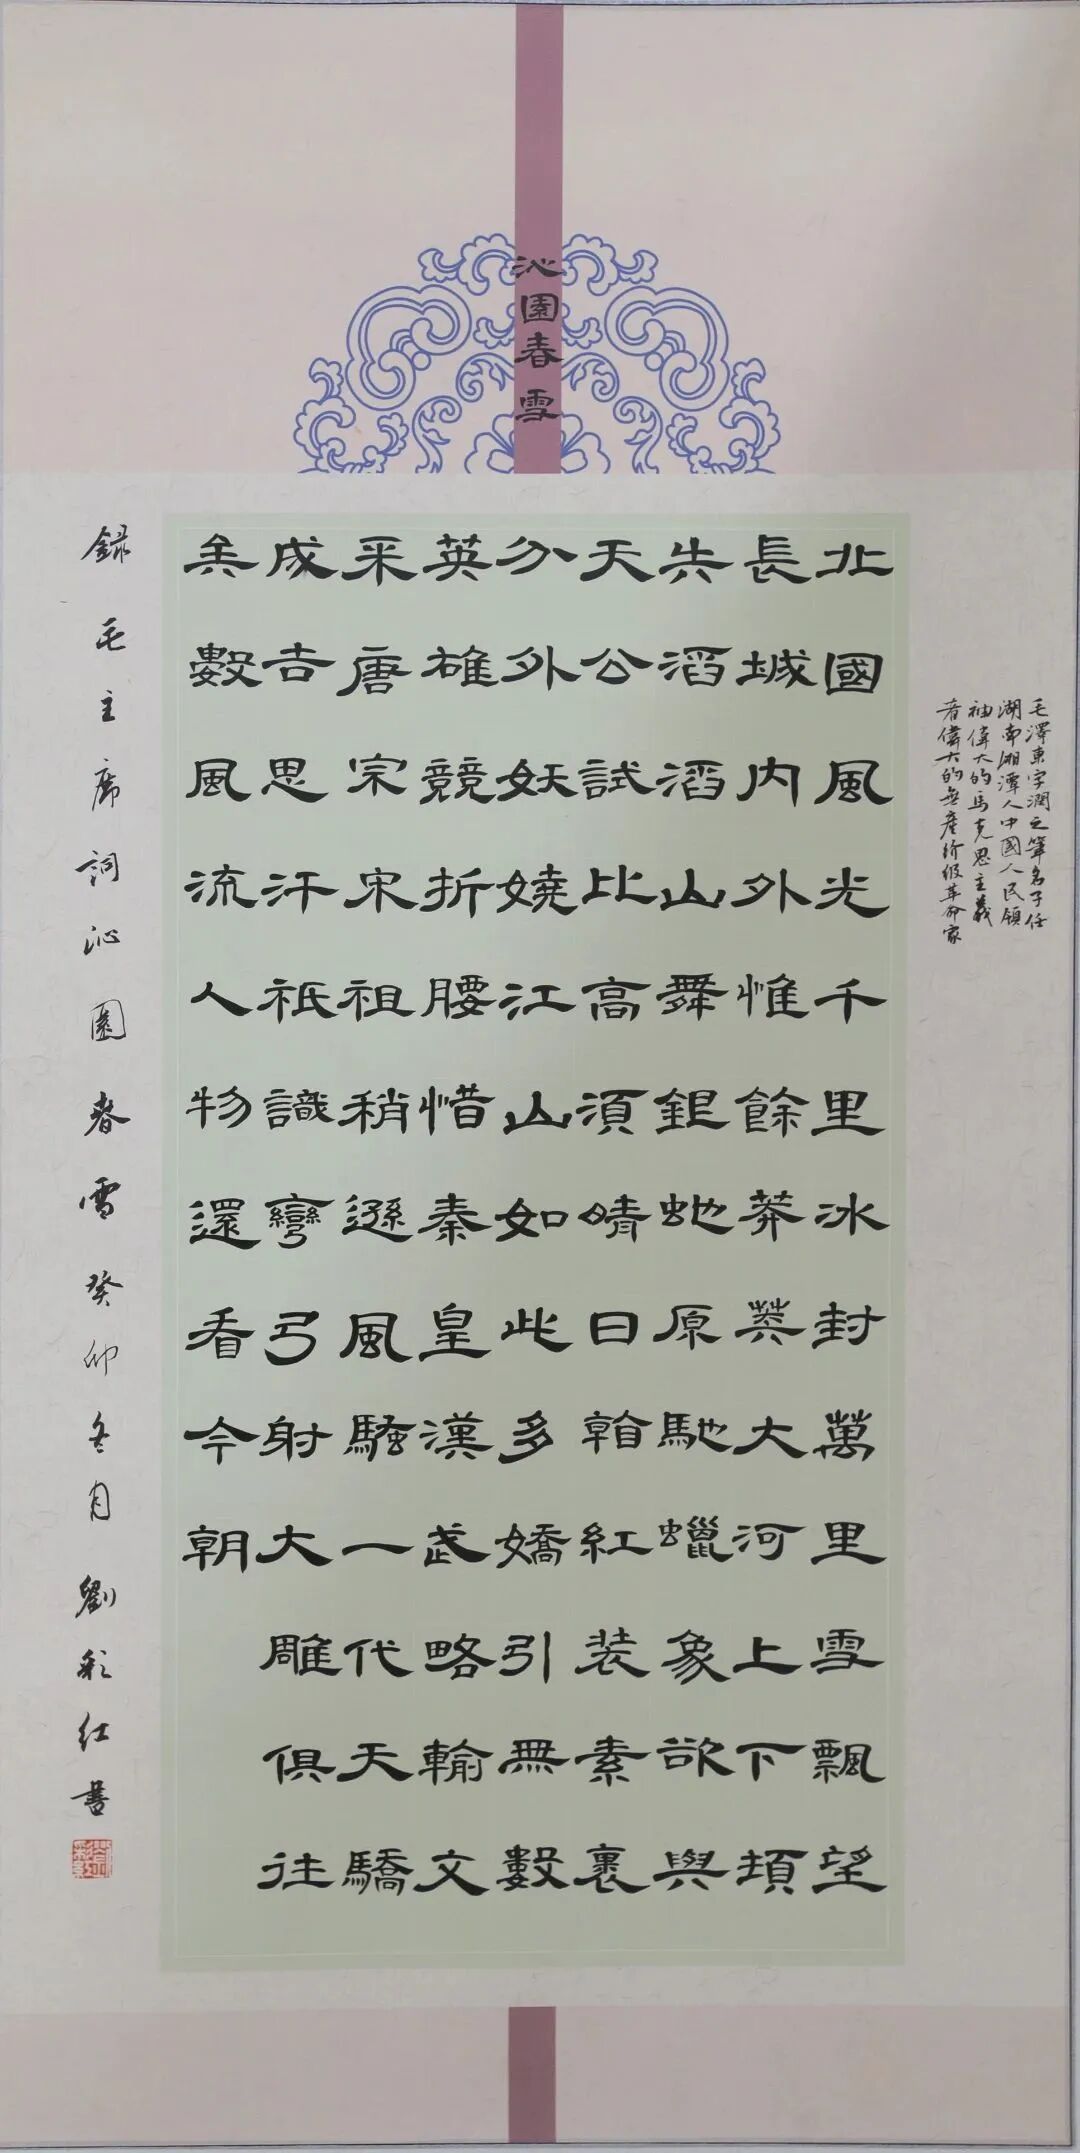 沁園春 雪
毛澤東字潤之筆名子任
湖南湘潭人中國人民領
袖偉大的馬克思主義
者偉大的無產階級革命家
北國風光千里冰封萬里雪飄望
長城內外惟餘莽莽大河上下頓
失滔滔山舞銀蛇原馳蠟象欲與
天公試比高須晴日看紅裝素裹
分外妖嬈江山如此多嬌引無數
英雄競折腰惜秦皇漢武略輸文
采唐宗宋祖稍遜風騷一代天驕
成吉思汗祇識彎弓射大雕俱往
矣數風流人物還看今朝
録毛主席詞沁園春雪癸卯冬月劉彩红書